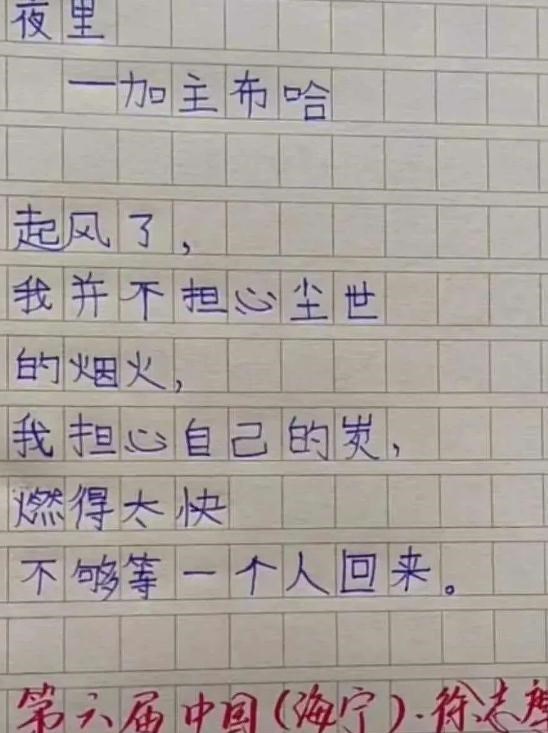 夜里
——加主布哈
起风了，
我并不担心尘世
的烟火，
我担心自己的炭，
燃得太快
不够等一个人回来。
第六届中国（海宁）·徐志摩